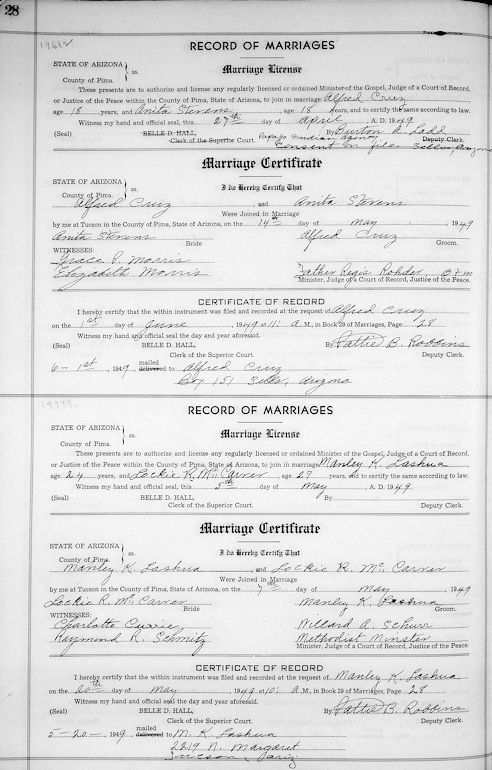 28
19682
RECORD OF MARRIAGES
STATE OF ARIZONA
ss.
County of Pima.
Marriage License
These presents are to authorize and license any regularly licensed or ordained Minister of the Gospel, Judge of a Court of Record,
or Justice of the Peace within the County of Pima, State of Arizona, to join in marriage Alfred Cruz
age 18 years, and Anita Stevens age 18 years, and to certify the same according to law.
Witness my hand and official seal, this 27th day of April, A. D. 1949
(Seal) BELLE D. HALL, By Burton A. Ladd
Clerk of the Superior Court. Papago Indian Agency Deputy Clerk.
Consent on file Sells, Arizona
Marriage Certificate
STATE OF ARIZONA
ss.
County of Pima.
I do Hereby Certify That
Alfred Cruz, and Anita Stevens
Were Joined in Marriage
by me at Tucson in the County of Pima, State of Arizona, on the 14th day of May 1949
Anita Stevens Bride Alfred Cruz Groom.
WITNESSES:
Grace P. Morris
Elizabeth Morris Father Regis Rohder, O.F.M.
Minister, Judge of a Court of Record, Justice of the Peace.
CERTIFICATE OF RECORD
I hereby certify that the within instrument was filed and recorded at the request of Alfred Cruz
on the 1st day of June 1949 at 11: A. M., in Book 29 of Marriages, Page 28
Witness my hand and official seal the day and year aforesaid.
(Seal) BELLE D. HALL, By Pattie B. Robbins
Clerk of the Superior Court. Deputy Clerk.
6-1st, 1949 mailed delivered to Alfred Cruz
Box 151 Sells, Arizona
19779
RECORD OF MARRIAGES
STATE OF ARIZONA
ss.
County of Pima.
Marriage License
These presents are to authorize and license any regularly licensed or ordained Minister of the Gospel, Judge of a Court of Record,
or Justice of the Peace within the County of Pima, State of Arizona, to join in marriage Manley K. Lashua
age 24 years, and Lockie R. McCarver age 27 years, and to certify the same according to law.
Witness my hand and official seal, this 5th day of May, A. D. 1949.
(Seal) BELLE D. HALL, By
Clerk of the Superior Court. Deputy Clerk.
Marriage Certificate
STATE OF ARIZONA
ss.
County of Pima.
I do Hereby Certify That
Manley K. Lashua and Lockie R. McCarver
Were Joined in Marriage
by me at Tucson in the County of Pima, State of Arizona, on the 7th day of May 1949
Lockie R. McCarver Bride Manley K. Lashua Groom.
WITNESSES:
Charlotte Currie Willard A. Schurr
Raymond R. Schmitz Methodist Minster
Minister, Judge of a Court of Record, Justice of the Peace.
CERTIFICATE OF RECORD
I hereby certify that the within instrument was filed and recorded at the request of Manley K. Lashua
on the 20th day of May 1949 at 10: A. M., in Book 29 of Marriages, Page 28
Witness my hand and official seal the day and year aforesaid.
(Seal) BELLE D. HALL, By Pattie B. Robbins
Clerk of the Superior Court. Deputy Clerk.
5-20-, 1949 mailed delivered to M. K. Lashua
2219 N. Margaret
Tucson, Ariz